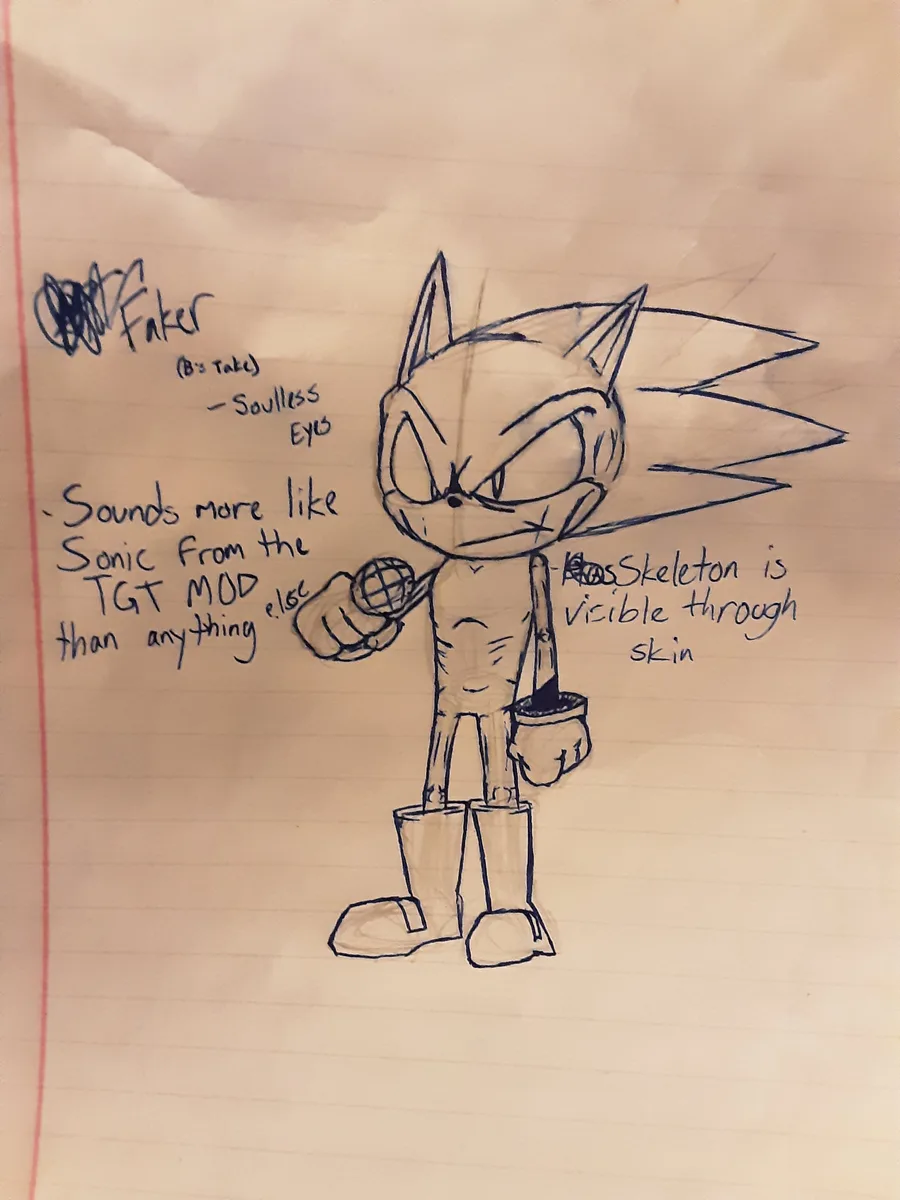 Faker
(B's Take)
- Soulless
Eyes
- Sounds more like
Sonic from the
TGT MOD
than anything else
- Skeleton is
visible through
skin